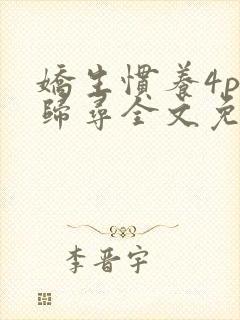 嬌生慣養4p
歸尋全文免
李晋宇